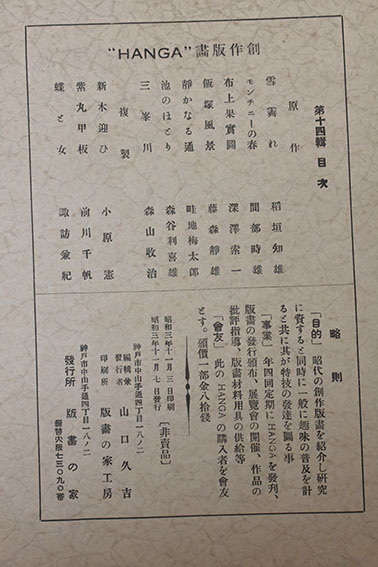 創作版畫 "HANGA"
第十四輯 目次
原作
雪霽れ 稻垣知雄
モンチニーの春 間部時雄
布上果實圖 深澤索一
飯塚風景 藤森靜雄
靜かなる通 畦地梅太郎
池のほとり 森谷利喜雄
三峯川 森山收治
複製
新木迎ひ 小原憲
紫丸甲板 前川千帆
蝶と女 諏訪兼紀
略則
「目的」昭代の創作版畫を紹介し研究
に資すると同時に一般に趣味の普及を計
ると共に其が特技の發達を圖る事
「事業」年四回定期にHANGAを發刊、
版畫の發行頒布、展覽會の開催、作品の
批評指導、版畫材料用具の供給等
「會友」此のHANGAの購入者を會友
とす。頒價一部金八拾錢
昭和三年十一月三日印刷
昭和三年十一月七日發行
[非賣品]
神戸市中山手通四丁目一八ノ二
編輯者
發行者 山口久吉
印刷所 版畫の家工房
神戸市中山手通四丁目一八ノ二
發行所 版畫の家
振替大阪七三〇九〇番